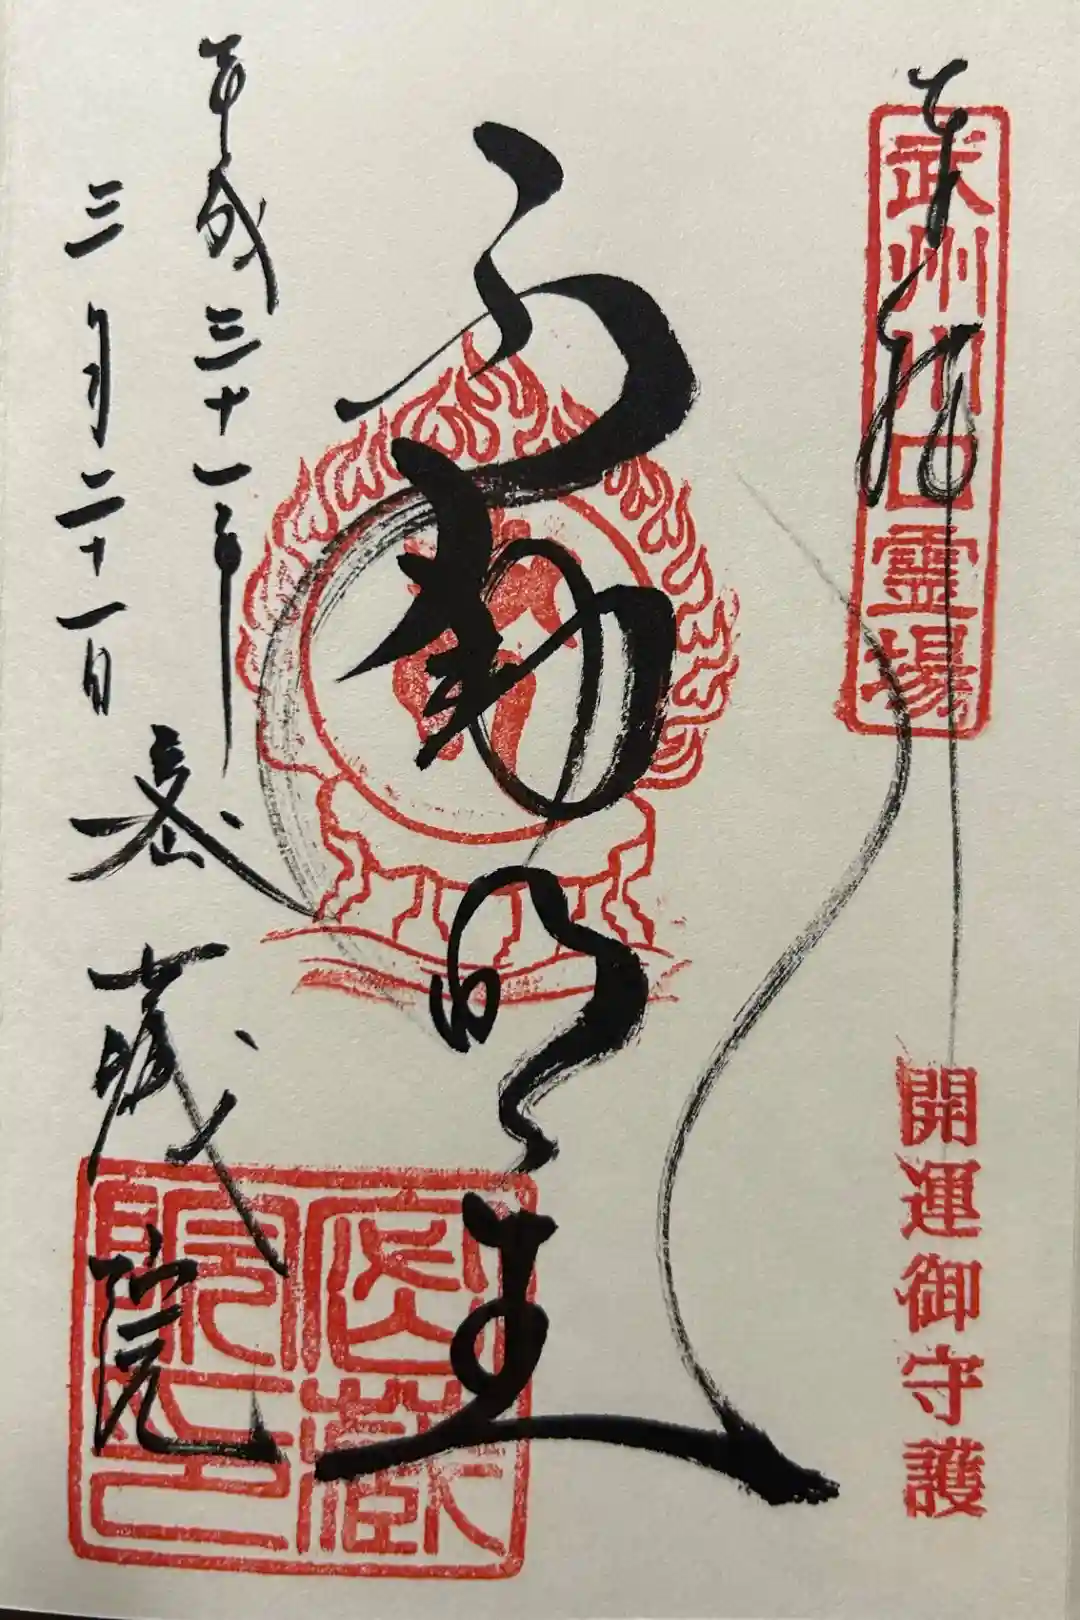 奉拝
武州川口霊場
開運御守護
不動明王
平成三十一年
三月二十一日
密蔵院
密蔵院印